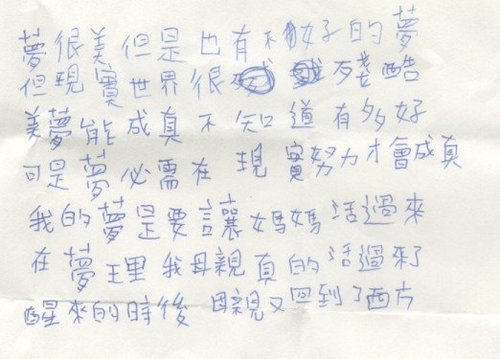 夢很美但是也有不好的夢
但現實世界很殘酷
美夢能成真不知道有多好
可是夢必需在現實努力才會成真
我的夢是要讓媽媽活過來
在夢裡我母親真的活過來了
醒來的時後母親又回到了西方